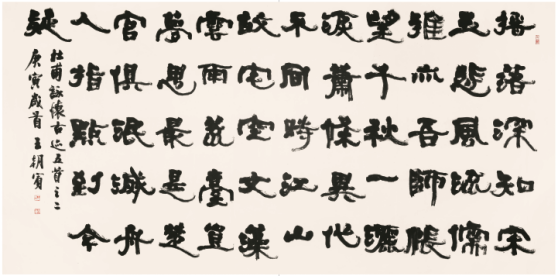 摇落深知宋
玉悲風流儒
雅亦吾師悵
望千秋一灑
淚蕭條異代
不同時江山
故宅空文藻
雲雨荒臺豈
夢思最是楚
宮俱泯滅舟
人指點到今
疑
杜甫詠懷古迹五首之二
庚寅歲首王朝賓